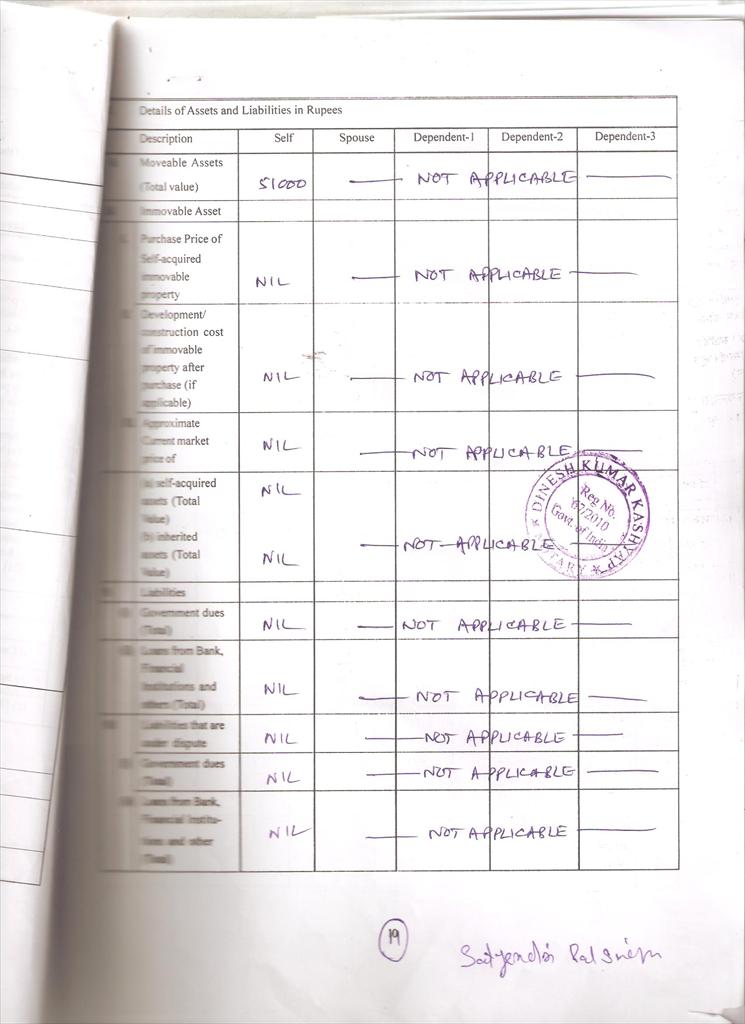 Details of Assets and Liabilities in Rupees
Description Self Spouse Dependent-1 Dependent-2 Dependent-3
Moveable Assets
(Total value) 51000 NOT APPLICABLE
Immovable Asset
Purchase Price of
Self-acquired
immovable NIL NOT APPLICABLE
property
Development/
construction cost
of immovable
property after NIL NOT APPLICABLE
purchase (if
applicable)
Approximate
Current market NIL NOT APPLICABLE
price of
(a) self-acquired NIL
assets (Total
Value)
(b) inherited NOT APPLICABLE
assets (Total NIL
Value)
Liabilities
Government dues NIL NOT APPLICABLE
(Total)
Loans from Bank,
Financial
Institutions and NIL NOT APPLICABLE
others (Total)
Liabilities that are
under dispute NIL NOT APPLICABLE
Government dues NIL NOT APPLICABLE
(Total)
Loans from Bank,
Financial Institu-
tions and other NIL NOT APPLICABLE
(Total)
DINESH KUMAR KASHYAP
Reg No.
67/2010
Govt. of India
* NOTARY *
19